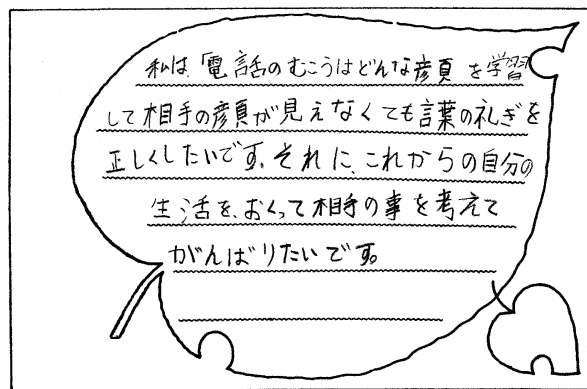 私は、「電話のむこうはどんな顔」を学習
して相手の顔が見えなくても言葉の礼ぎを
正しくしたいです。それに、これからの自分の
生活を、おくって相手の事を考えて
がんばりたいです。